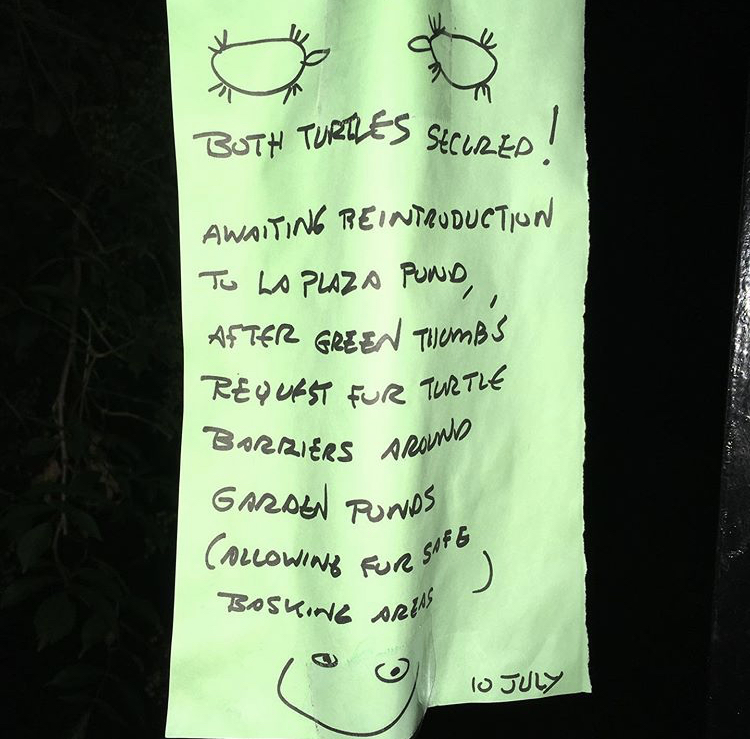 BOTH TURTLES SECURED!
AWAITING REINTRODUCTION
TO LA PLAZA POND,
AFTER GREEN THUMB'S
REQUEST FOR TURTLE
BARRIERS AROUND
GARDEN PONDS
(ALLOWING FOR SAFE
BASKING AREAS)
10 JULY